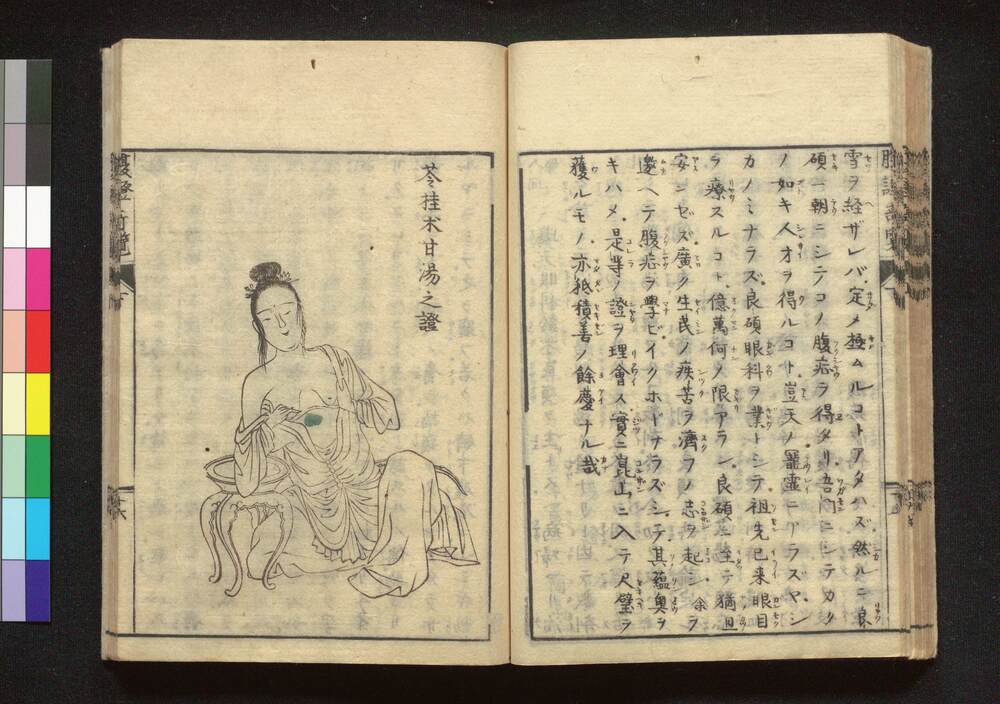 腹證奇覽
雪ヲ経ザレバ定メ極ムルコトアタハズ然ルニ良
碩一朝ニシテコノ腹症ヲ得タリ吾門ニシテカク
ノ如キ人才ヲ得ルコト豈天ノ寵霊ニアラズヤシ
カノミナラズ良碩眼科ヲ業トシテ祖先已来眼目
ヲ療スルコト億萬何ノ限アラン良碩ニ至テ猶且
安ンゼズ廣ク生民ノ疾苦ヲ濟フノ志ヲ起シ余ヲ
邀ヘテ腹症ヲ學ビイクホドナラズシテ其蘊奥ヲ
キハメ是等ノ證ヲ理會ス實ニ崑山ニ入テ尺璧ヲ
獲ルモノ亦積善ノ餘慶ナル哉
苓桂朮甘湯之證
腹證奇覽
下
十六